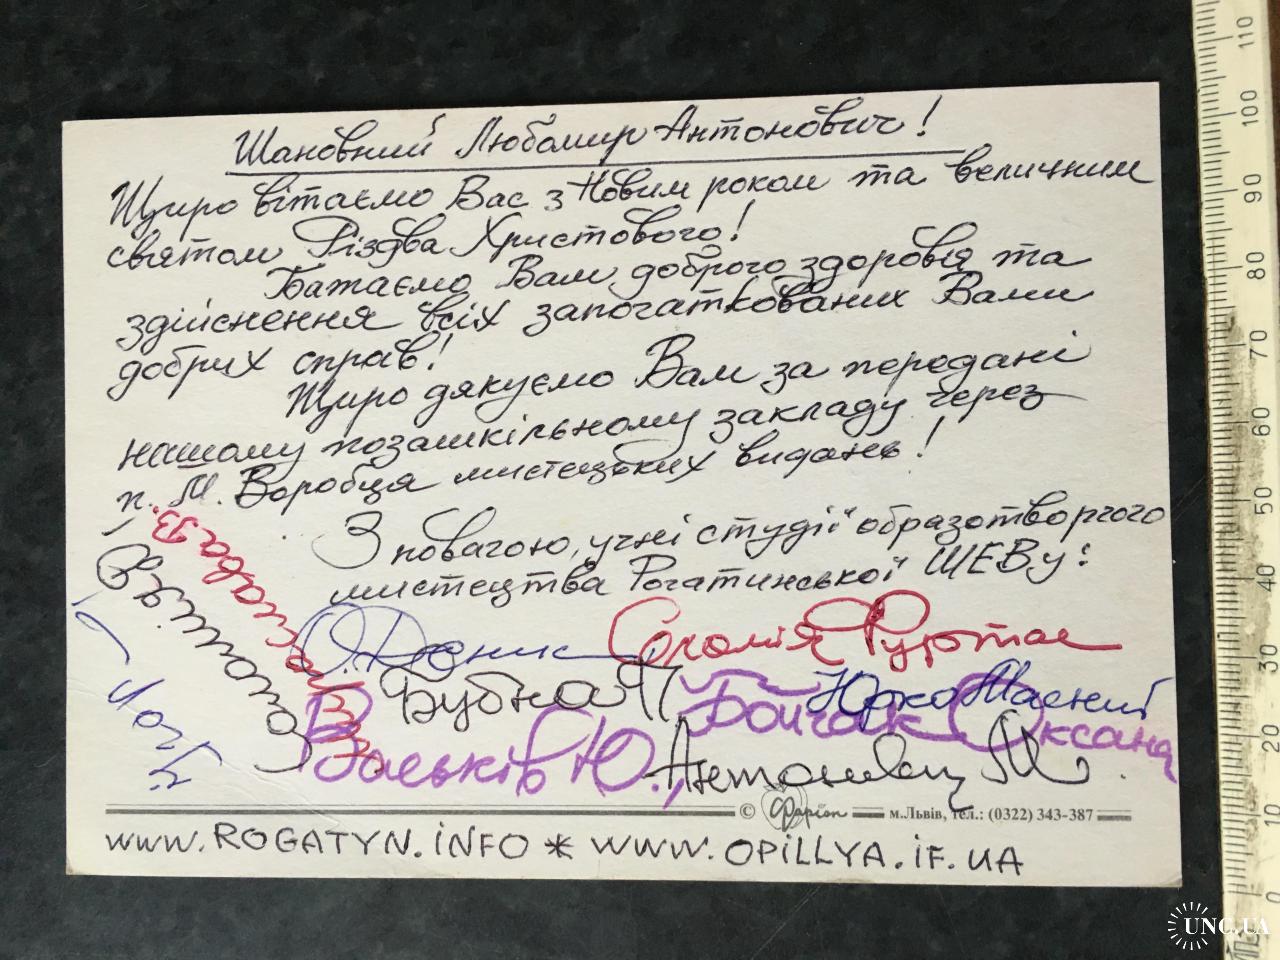 Шановний Любомир Антонович!
Щиро вітаємо Вас з Новим роком та величним
святом Різдва Христового!
Бажаємо Вам доброго здоровія та
здійснення всіх започаткованих Вами
добрих справ!
Щиро дякуємо Вам за передані
нашому позашкільному закладу через
п. М. Воробця мистецьких видань!
З повагою, учні студії образотворчого
мистецтва Рогатинської ШЕВу:
Денис Соломія
Бубна Юрко
Васьків Ю., Бойчак Оксана
Антонівці М.
© Фаріон м.Львів, тел.: (0322) 343-387
www.ROGATYN.iNFO * www.OPiLLYA.iF.UA
110
100
90
80
70
60
50
40
30
20
10
0
UNC.UA